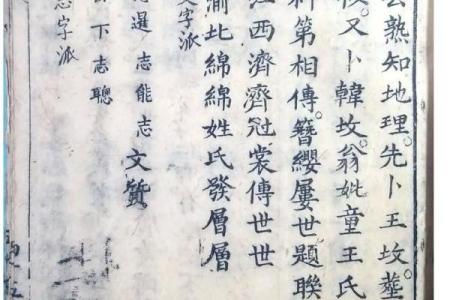 熟知地理。先卜王坟。葬
又卜韓坟。翁妣童王氏
科第相傳。簪纓屢世題聯
江西濟濟冠裳傳世世
渝北綿綿姓氏發層層
文字派
志能志文質
下志聰
志字派